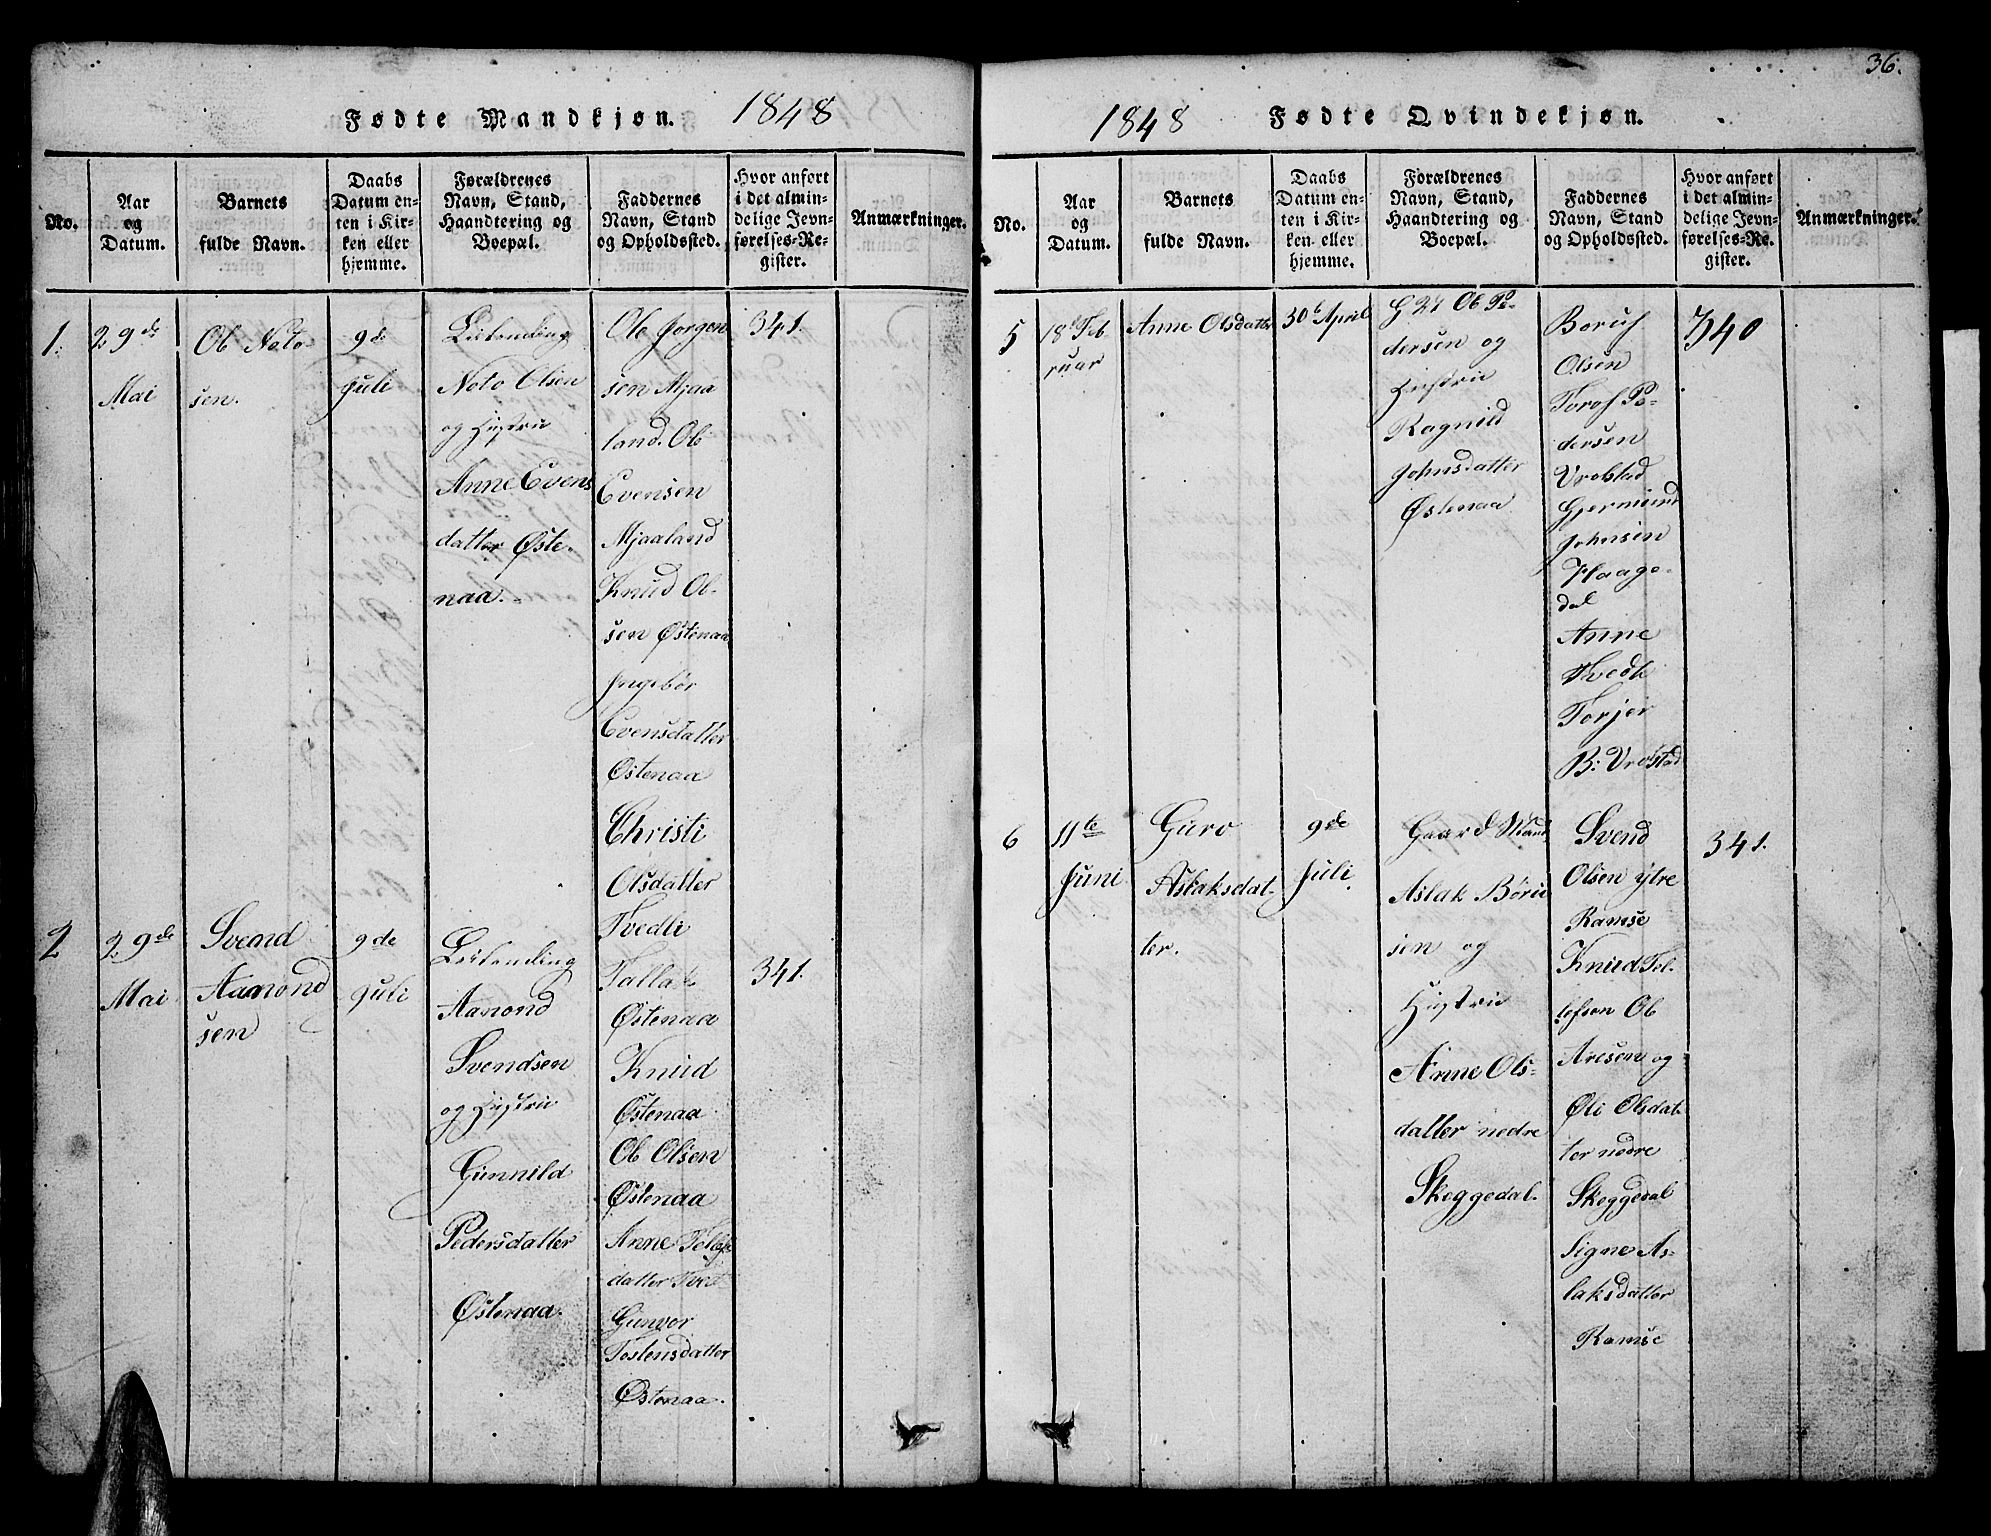 Fødte Mandkjøn. 1848
No.
Aar
og
Datum.
Barnets
fulde Navn.
Daabs
Datum en-
ten i Kir-
ken eller
hjemme.
Forældrenes
Navn, Stand,
Haandtering og
Boepæl.
Faddernes
Navn, Stand
og Opholdssted.
Hvor anført
i det almin-
delige Jevn-
førelses-Re-
gister.
Anmærkninger.
1.
29de
Mai
Ob Noto-
sen.
9de
Juli
Leilending
Noto Olsen
og Hustrue
Anne Evens
datter Øste-
naa.
Ole Jorgen
sen Mjaa
land. Ob
Evensen
Mjaaland
Knud Ol-
sen Østenaa
Ingebor
Evensdatter
Østenaa
Christi
Olsdatter
Tvedti
341.
2
29de
Mai
Svend
Aamond
sen
9de
Juli
Leilending
Aamond
Svendsen
og Hustrue
Gunnild
Pedersdatter
Østenaa.
Tallak
Østenaa
Knud
Østenaa
Ob Olsen
Østenaa
Anne Tellefs
datter Tvet
Gunvor
Tostensdatter
Østenaa.
341.
36.
1848 Fødte Qvindekjøn.
No.
Aar
og
Datum.
Barnets
fulde Navn.
Daabs
Datum en-
ten i Kir-
ken eller
hjemme.
Forældrenes
Navn, Stand,
Haandtering og
Boepæl.
Faddernes
Navn, Stand
og Opholdssted.
Hvor anført
i det almin-
delige Jevn-
førelses-Re-
gister.
Anmærkninger.
5
18d Feb
ruar
Anne Olsdatter
30d April
Ob Pe-
dersen og
Hustrue
Ragnild
Johnsdatter
Østenaa
Olsen
Torof Pe-
dersen
Vrolstad
Gjermund
Johnsen
Haage-
dal
Anne
Tvedt
Torjer
B: Vrolstad
340
6
11te
Juni
Guro
Aslaksdat-
ter.
9de
Juli.
Gaard
Aslak Børie
sen og
Hustrue
Anne Ols-
datter nedre
Skeggedal.
Svend
Olsen ytre
Ramse
Knud Tel-
lefsen Ob
Aresen og
Øli Olsdat
ter nedre
Skeggedal
Signe As-
laksdatter
Ramse
341.